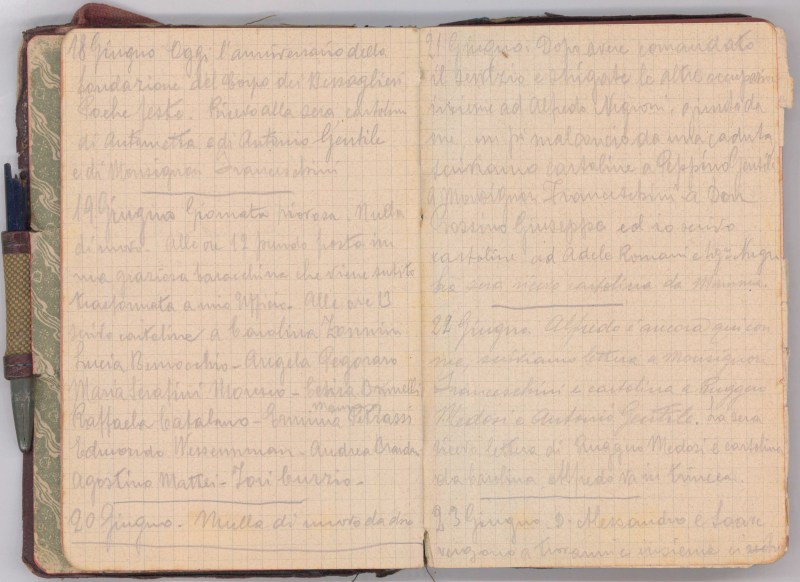 18 Giugno Oggi l'anniversario della
fondazione del Corpo dei Bersaglieri
Poche feste. Ricevo alla sera cartoline
di Antonietta e di Antonio Gentile
e di Monsignor Franceschini
19 Giugno Giornata piovosa. Nulla
di nuovo. Alle ore 12 prendo posto in
una graziosa baracchina che viene subito
trasformata a uno Ufficio. Alle ore 13
scrivo cartoline a Carolina
Lucia - Angela Pegoraro
Maria Serafini Moreno -
Raffaela Catalano - Emma Petrassi
mamma
Edmondo - Andrea
Agostino Mattei -
20 Giugno - Nulla di nuovo da dire
21 Giugno: Dopo avere comandato
il servizio e sbrigate le altre occupazioni
insieme ad Alfredo Negroni, giunto da
me un po' malconcio da una caduta
scriviamo cartoline a Peppino Gentile
a Monsignor Franceschini a Don
Giuseppe ed io scrivo
cartoline ad Adele Romani e
sera ricevo cartolina da Mamma.
22 Giugno Alfredo è ancora qui con
me, scriviamo lettera a Monsignor
Franceschini e cartolina a Ruggero
Medori e Antonio Gentile. La sera
ricevo lettera di Ruggero Medori e cartolina
da Carolina Alfredo va in trincea.
23 Giugno. D. Alessandro e
vengono a trovarmi e insieme ci